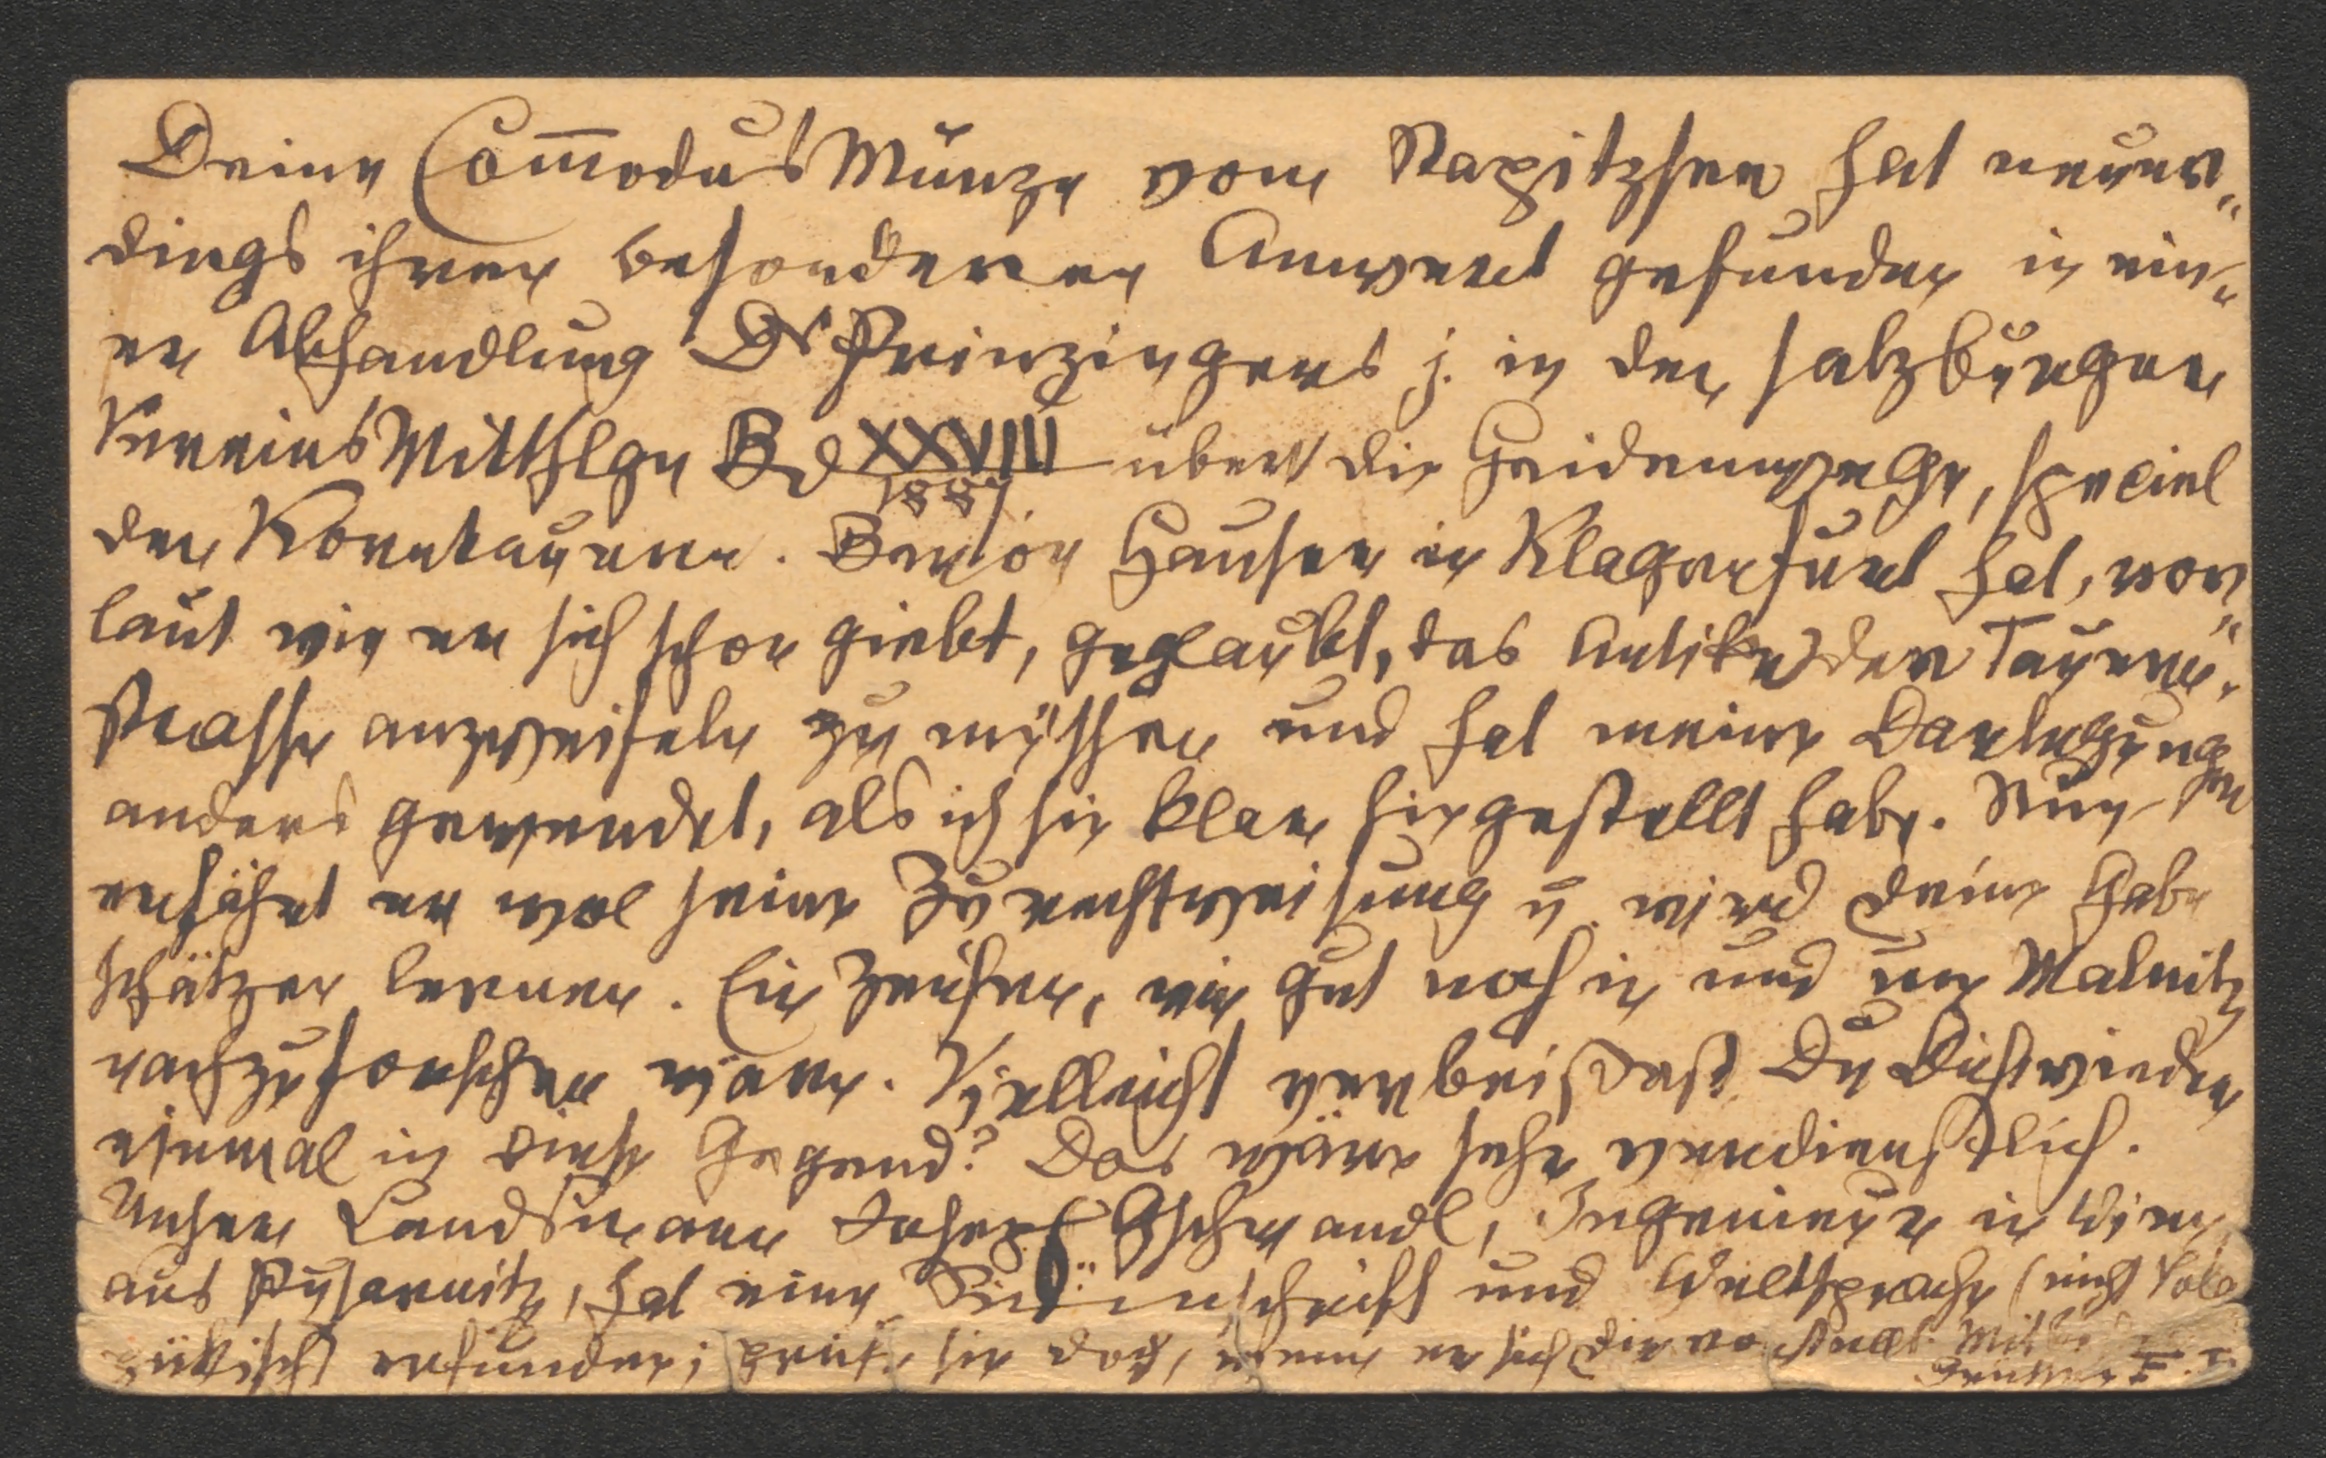 Deine Com̄odus Münze vom Stapitzsee hat neuer„
dings ihren besonderen Anwert gefunden in ein„
er Abhandlung Dr Prinzingers j. in den salzburger
Vereins Mitthlgn Bd XXVIII 1887 über die Heidenwege, speciel
den Korntauern. Baron Hauser in Klagenfurt hat, vor„
laut wie er sich schon giebt, geglaubt, das Antike der Tauern„
strasse anzweifeln zu müssen und hat meine Darlegungen
anders gewendet, als ich sie klar hingestellt habe. Nun
erfährt er wol seine Zurechtweisung u. wird deine Gabe
schätzen lernen. Ein Zeichen, wie gut noch in und um Malnitz
nachzuforschen wäre. Vielleicht verbeißest Du Dich wieder
einmal in diese Gegend? Das wäre sehr verdienstlich.
Unser Landsmann Josef Gschwandl, Ingenieur in Wien
aus Pusarnitz, hat eine schrift und Weltsprache (nicht Vola
pükisch) erfunden; prüfe sie doch, wenn er sich die